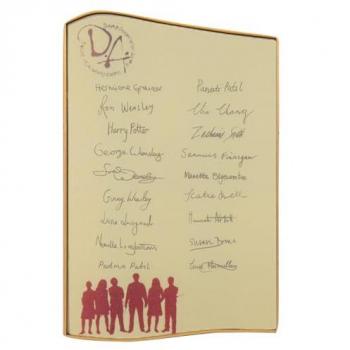 D.A.
Hermione Granger
Ron Weasley
Harry Potter
George Weasley
Ginny Weasley
Luna Lovegood
Neville Longbottom
Padma Patil
Parvati Patil
Cho Chang
Zacharias Smith
Seamus Finnigan
Marietta Edgecombe
Katie Bell
Hannah Abbott
Susan Bones